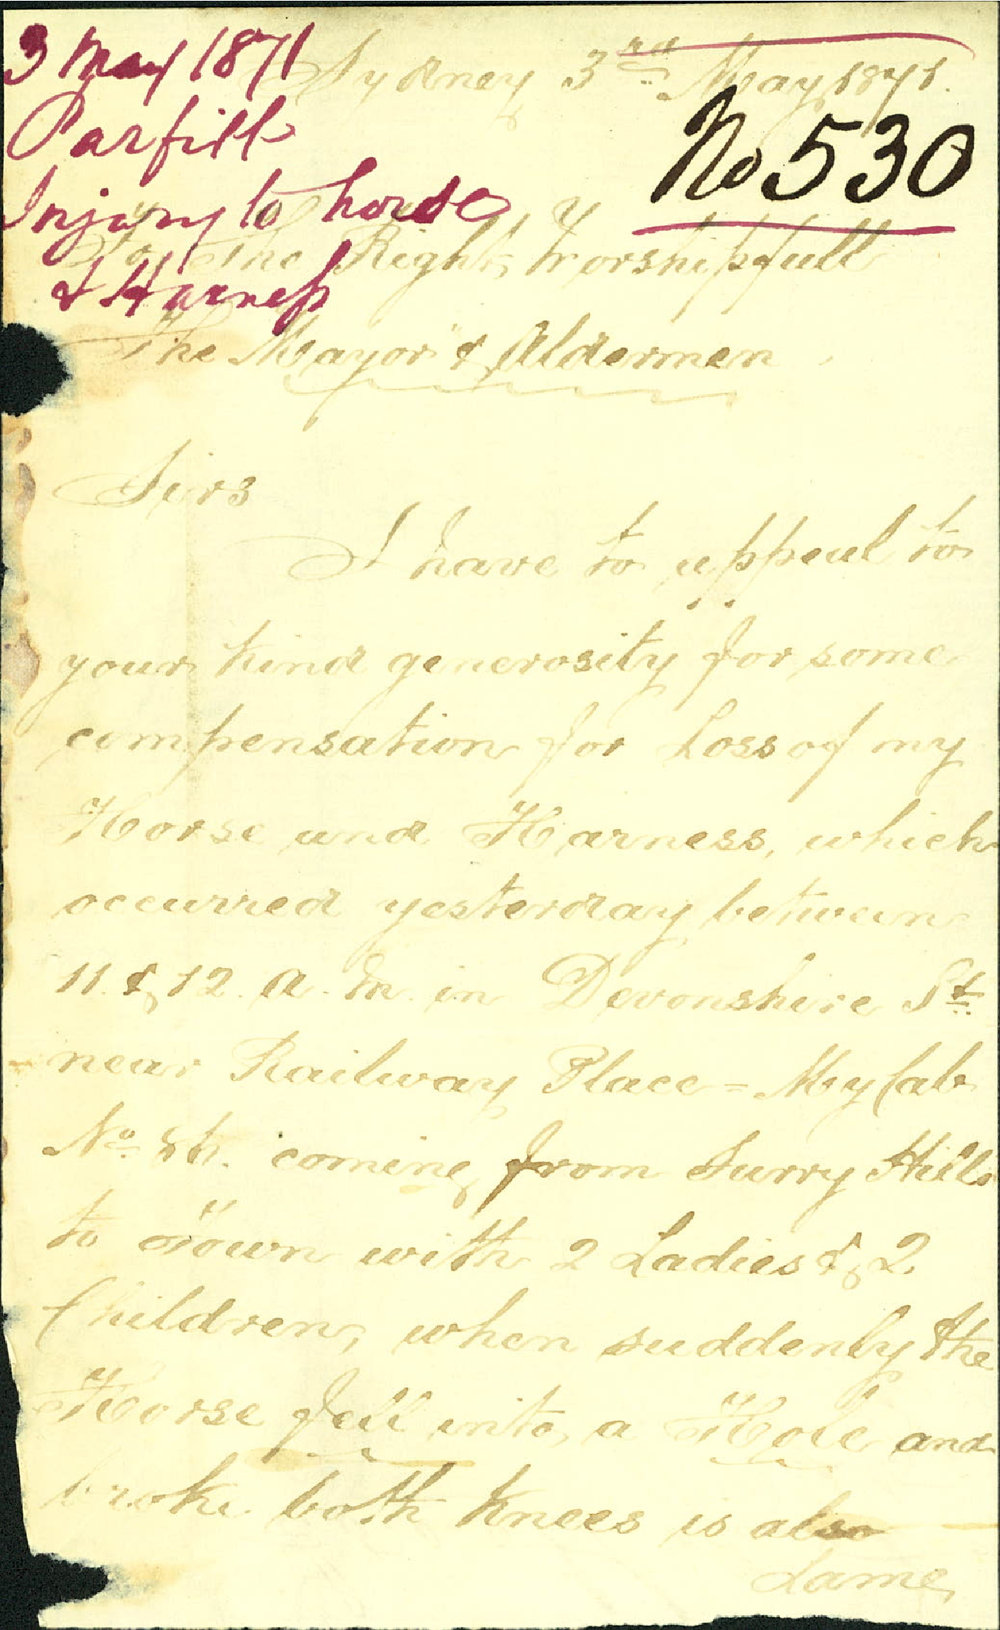 3 May 1871
Parfitt
Injury to horse
& Harness
No 530
Sydney 3rd May, 1871.
To, The Right, Worshipfull
The Mayor & Aldermen
Sirs
I have to appeal to
your kind generosity for some
compensation for Loss of my
Horse and Harness, which
occurred yesterday between
11. & 12. A. M. in Devonshire St.
near Railway Place = My Cab
No. coming from Surry Hills
to Town with 2 Ladies & 2
Children, when suddenly the
Horse fell into a Hole and
broke both knees is also
Lame